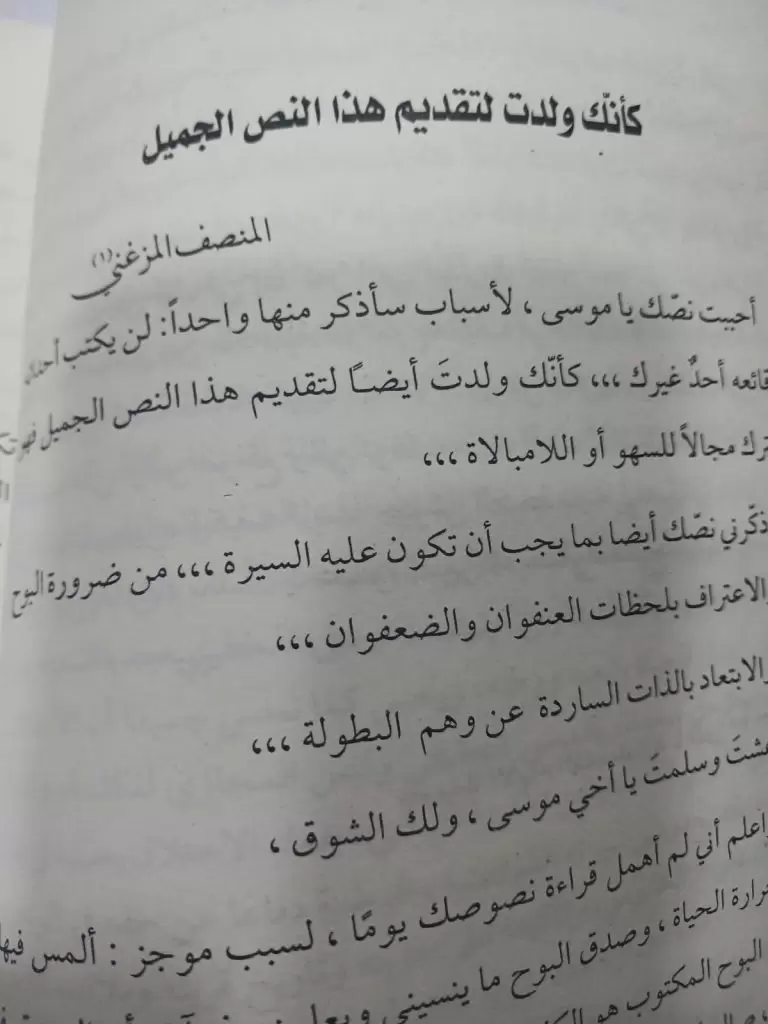 كأنّك ولدت لتقديم هذا النص الجميل
المنصف المزغني(١)
أحببت نصّك يا موسى ، لأسباب سأذكر منها واحداً: لن يكتب
قائعه أحدٌ غيرك ،،، كأنّك ولدتَ أيضاً لتقديم هذا النص الجميل
ترك مجالاً للسهو أو اللامبالاة ،،،
ذكّرني نصّك أيضا بما يجب أن تكون عليه السيرة ،،، من ضرورة البوح
والاعتراف بلحظات العنفوان والضعفوان ،،،
والابتعاد بالذات الساردة عن وهم البطولة ،،،
عشتَ وسلمتَ يا أخي موسى ، ولك الشوق ،
واعلم أني لم أهمل قراءة نصوصك يومًا ، لسبب موجز : ألمس فيها
حرارة الحياة ، وصدق البوح ما ينسيني
البوح المكتوب هو